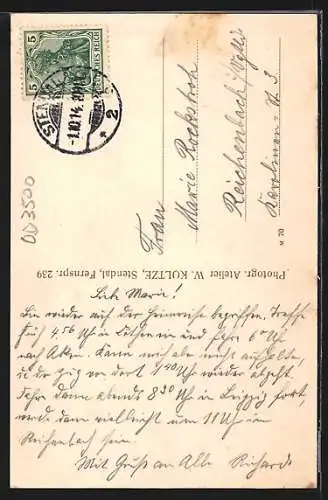 5 5
DEUTSCHES REICH
STENDAL
-1.10.14.
* 2
DD3500
Frau
Marie Rockstroh
Reichenbach / Vogtl.
Karolinenstr. 3
M 70
Photogr. Atelier W. KOLTZE, Stendal Fernspr. 239
Liebe Marie!
Bin wieder auf der Heimreise begriffen. Treffe
früh 4 56 Uhr in Cöthen ein und fahre 6 0 Uhr
nach Aken. Kann mich aber nicht aufhalten,
da der Zug von dort 1 40 Uhr wieder abgeht.
Fahre dann abends 8 30 Uhr in Leipzig fort,
werde dann vielleicht um 11 Uhr in
Reichenbach sein.
Mit Gruß an Alle Richard